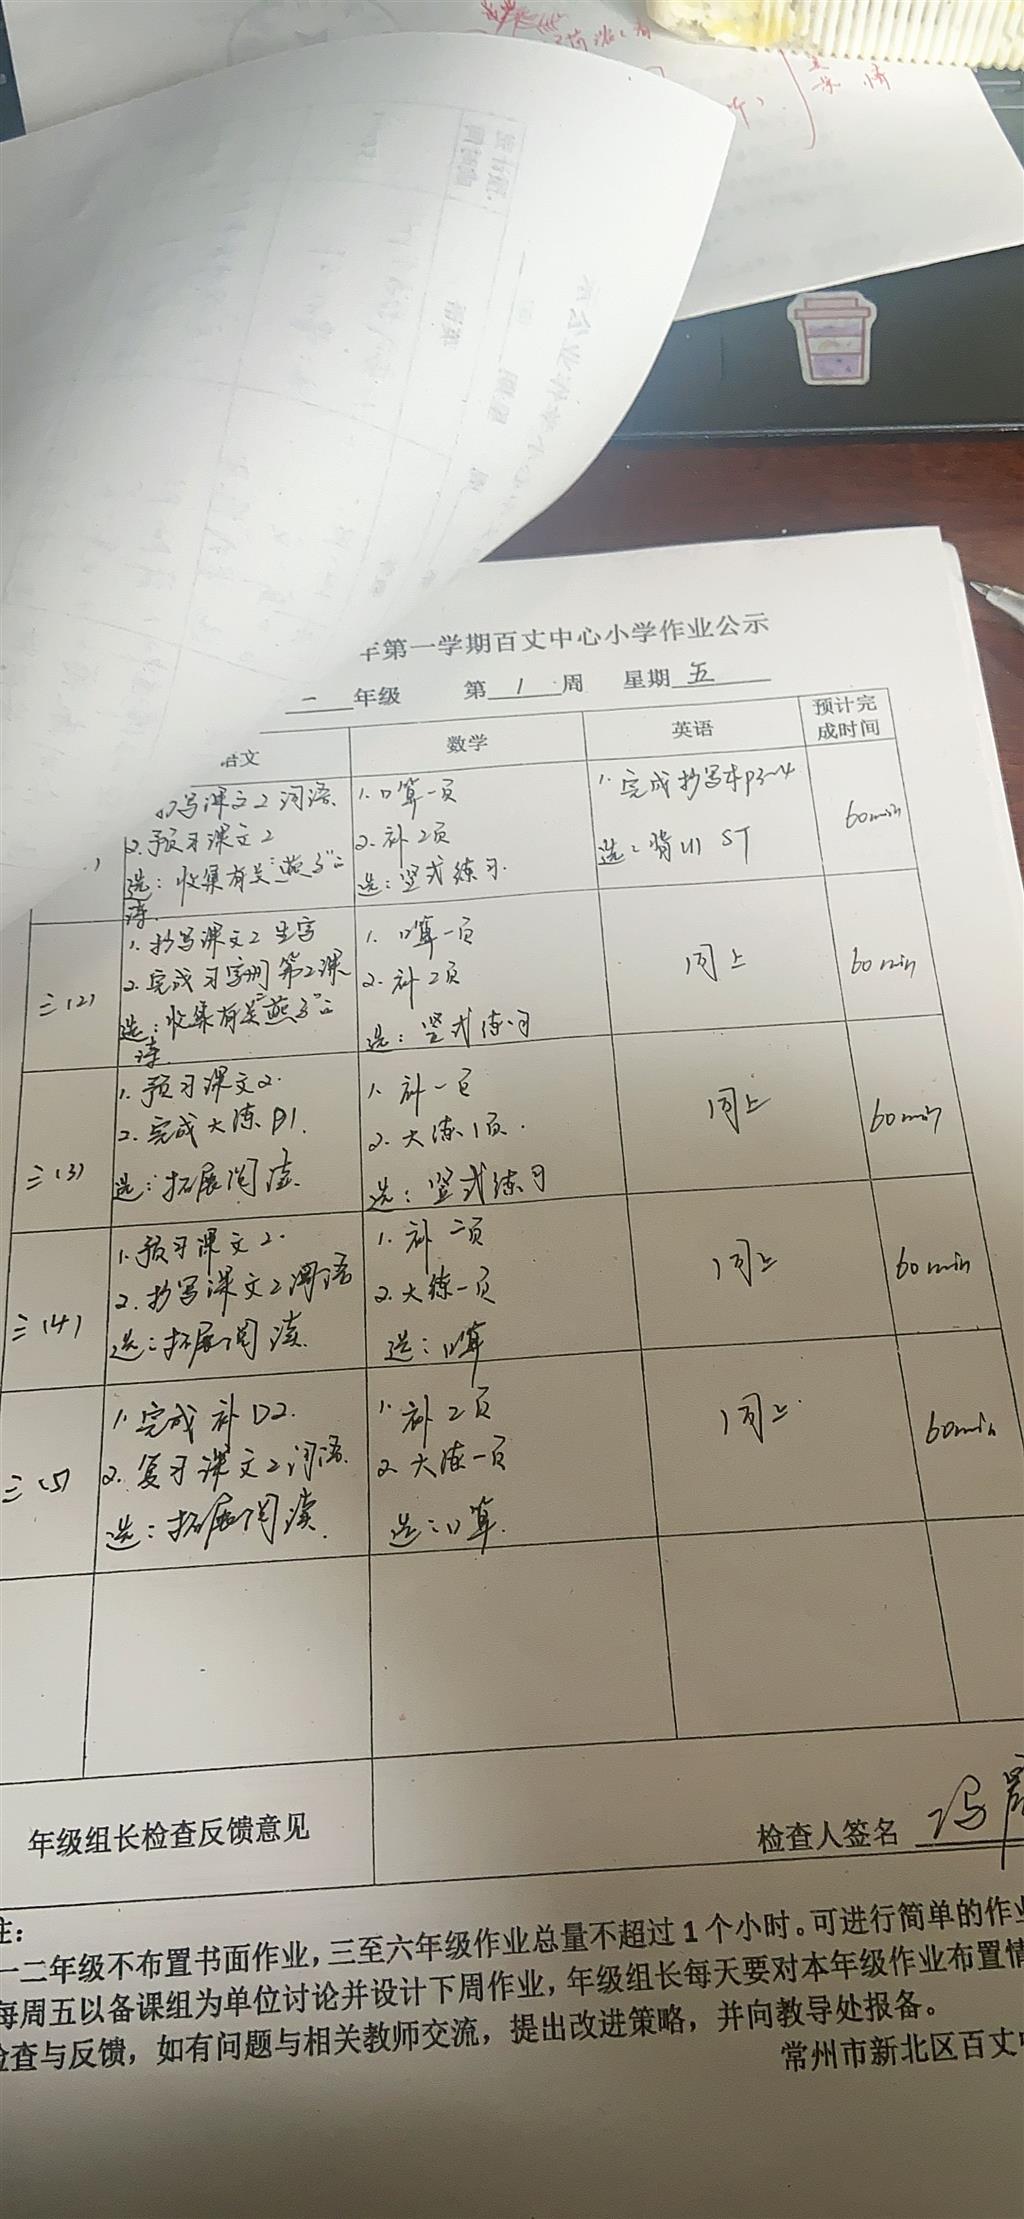 年第一学期百丈中心小学作业公示
年级 第 1 周 星期 五
语文 数学 英语 预计完成时间
抄写课文2词语.
2.预习课文2
选：收集有关"燕子"的
诗.
1.口算一页
2.补2页
选：竖式练习.
1.完成抄写本P3~4
选：背U1 ST
60min
三(2)
1.抄写课文2生字
2.完成习字册第2课
选：收集有关"燕子"的
诗.
1.口算一页
2.补2页
选：竖式练习
同上
60min
三(3)
1.预习课文2.
2.完成大练P1.
选：拓展阅读.
1.补一页
2.大练1页.
选：竖式练习
同上
60min
三(4)
1.预习课文2.
2.抄写课文2词语
选：拓展阅读.
1.补二页
2.大练一页
选：口算
同上
60min
三(5)
1.完成补P2.
2.复习课文2词语.
选：拓展阅读.
1.补2页
2.大练一页
选：口算.
同上.
60min
年级组长检查反馈意见
检查人签名 冯
注：
一二年级不布置书面作业，三至六年级作业总量不超过1个小时。可进行简单的作业
每周五以备课组为单位讨论并设计下周作业，年级组长每天要对本年级作业布置情
检查与反馈，如有问题与相关教师交流，提出改进策略，并向教导处报备。
常州市新北区百丈中